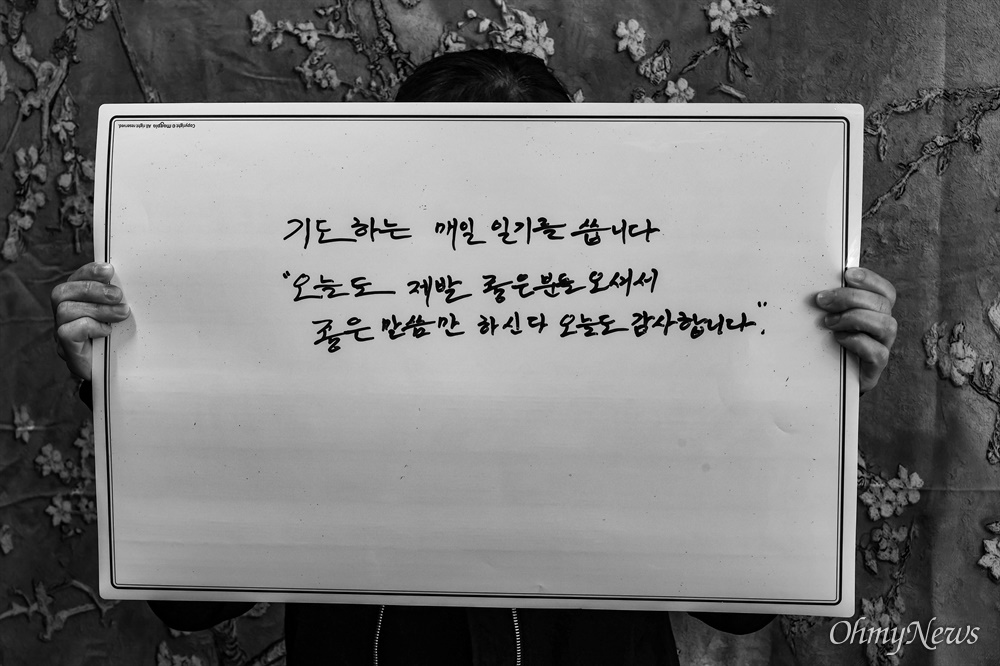 기도 하는 매일 일기를 씁니다
"오늘도 제발 좋은분들 오셔서
좋은 말씀만 하신다 오늘도 감사합니다".
Copyright © Magpie All right reserved.
OhmyNews